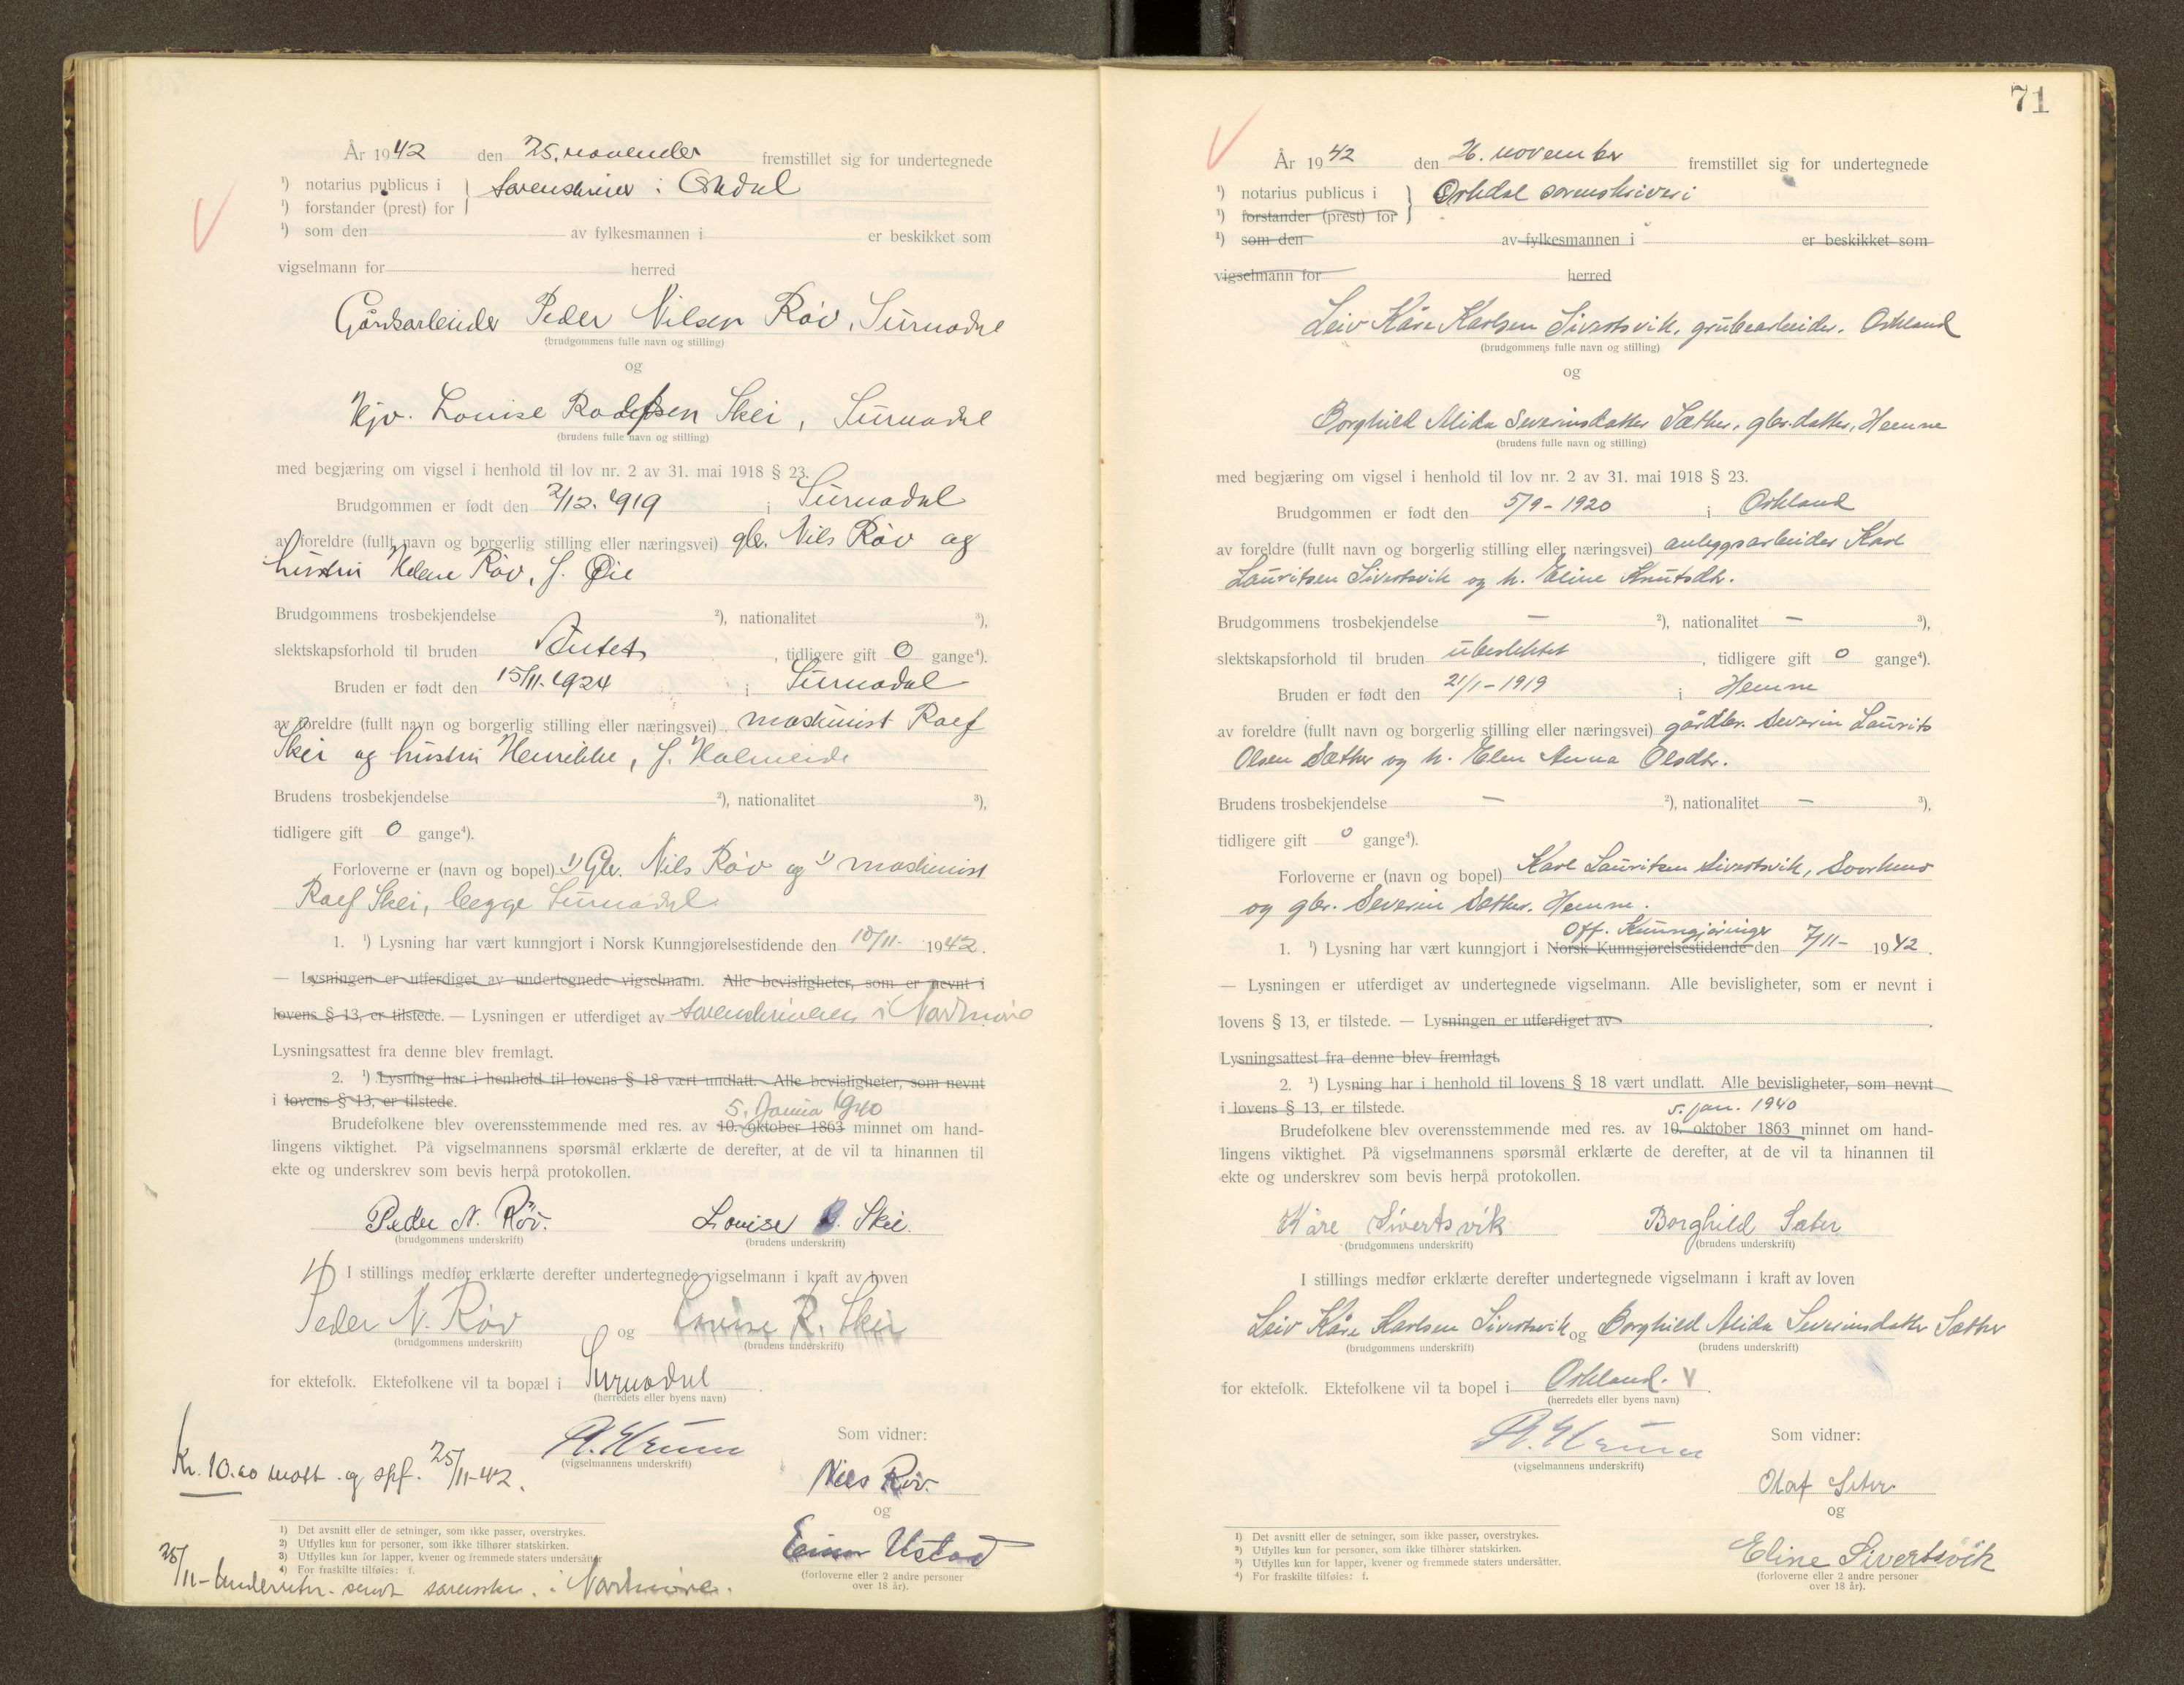 År 1942 den 25. november fremstillet sig for undertegnede
¹) notarius publicus i } sorenskriver i Orkdal
¹) forstander (prest) for
¹) som den av fylkesmannen i er beskikket som
vigselmann for herred
Gårdsarbeider Peder Nilsen Røv, Surnadal
(brudgommens fulle navn og stilling)
og
Hjv. Louise Skei, Surnadal
(brudens fulle navn og stilling)
med begjæring om vigsel i henhold til lov nr. 2 av 31. mai 1918 § 23.
Brudgommen er født den 2/12. 1919 i Surnadal
av foreldre (fullt navn og borgerlig stilling eller næringsvei) gbr. Nils Røv og
hustru Helene Røv, f. Øie
Brudgommens trosbekjendelse ²), nationalitet ³),
slektskapsforhold til bruden Intet, tidligere gift 0 gange⁴).
Bruden er født den 15/11. 1924 i Surnadal
av foreldre (fullt navn og borgerlig stilling eller næringsvei) maskinist Rolf
Skei og hustru Henrikke, f. Holmeide
Brudens trosbekjendelse ²), nationalitet ³),
tidligere gift 0 gange⁴).
Forloverne er (navn og bopel) 1) Gbr. Nils Røv og maskinist
Rolf Skei, begge Surnadal.
1. ¹) Lysning har vært kunngjort i Norsk Kunngjørelsestidende den 10/11- 1942.
— Lysningen er utferdiget av undertegnede vigselmann. Alle bevisligheter, som er nevnt i
lovens § 13, er tilstede. — Lysningen er utferdiget av sorenskriveren i Nordmøre
Lysningsattest fra denne blev fremlagt.
2. ¹) Lysning har i henhold til lovens § 18 vært undlatt. Alle bevisligheter, som nevnt
i lovens § 13, er tilstede.
5. 1940
Brudefolkene blev overensstemmende med res. av 10. oktober 1863 minnet om hand-
lingens viktighet. På vigselmannens spørsmål erklærte de derefter, at de vil ta hinannen til
ekte og underskrev som bevis herpå protokollen.
Peder N. Røv. Louise Skei.
(brudgommens underskrift) (brudens underskrift)
I stillings medfør erklærte derefter undertegnede vigselmann i kraft av loven
Peder N. Røv og Louise R. Skei
(brudgommens underskrift) (brudens underskrift)
for ektefolk. Ektefolkene vil ta bopæl i Surnadal.
(herredets eller byens navn)
Som vidner:
(vigselmannens underskrift)
Kr. 10.00 mott. og spf. 25/11-42.
Nils Røv.
og
Einar Ustad
(forloverne eller 2 andre personer
over 18 år).
¹) Det avsnitt eller de setninger, som ikke passer, overstrykes.
²) Utfylles kun for personer, som ikke tilhører statskirken.
³) Utfylles kun for lapper, kvener og fremmede staters undersåtter
⁴) For fraskilte tilføies: f.
25/11- Underretn. sendt sorenskr. i Nordmøre.
71
År 1942 den 26. november fremstillet sig for undertegnede
¹) notarius publicus i } Orkdal sorenskriveri
¹) forstander (prest) for
¹) som den av fylkesmannen i er beskikket som
vigselmann for herred
Leiv Kåre Karlsen Sivertsvik, grubearbeider. Orkland
(brudgommens fulle navn og stilling)
og
Borghild Alida Severinsdatter Sæther, gbr.datter, Hemne
(brudens fulle navn og stilling)
med begjæring om vigsel i henhold til lov nr. 2 av 31. mai 1918 § 23.
Brudgommen er født den 5/9-1920 i Orkland
av foreldre (fullt navn og borgerlig stilling eller næringsvei) anleggsarbeider Karl
Lauritsen Sivertsvik og h. Eline Knutsdtr.
Brudgommens trosbekjendelse – ²), nationalitet – ³),
slektskapsforhold til bruden ubeslektet, tidligere gift 0 gange⁴).
Bruden er født den 21/1-1919 i Hemne
av foreldre (fullt navn og borgerlig stilling eller næringsvei) gårdbr. Severin Laurits
Olsen Sæther og h. Elen Anna Olsdtr.
Brudens trosbekjendelse – ²), nationalitet – ³),
tidligere gift 0 gange⁴).
Forloverne er (navn og bopel) Karl Lauritsen Sivertsvik, Svorkmo
og gbr. Severin Sæther. Hemne.
Off. Kunngjøringer
1. ¹) Lysning har vært kunngjort i Norsk Kunngjørelsestidende den 7/11- 1942.
— Lysningen er utferdiget av undertegnede vigselmann. Alle bevisligheter, som er nevnt i
lovens § 13, er tilstede. — Lysningen er utferdiget av
Lysningsattest fra denne blev fremlagt.
2. ¹) Lysning har i henhold til lovens § 18 vært undlatt. Alle bevisligheter, som nevnt
i lovens § 13, er tilstede.
5. jan. 1940
Brudefolkene blev overensstemmende med res. av 10. oktober 1863 minnet om hand-
lingens viktighet. På vigselmannens spørsmål erklærte de derefter, at de vil ta hinannen til
ekte og underskrev som bevis herpå protokollen.
Kåre Sivertsvik Borghild Sæter
(brudgommens underskrift) (brudens underskrift)
I stillings medfør erklærte derefter undertegnede vigselmann i kraft av loven
Leiv Kåre Karlsen Sivertsvik og Borghild Alida Severinsdatter Sæther
(brudgommens underskrift) (brudens underskrift)
for ektefolk. Ektefolkene vil ta bopel i Orkland.
(herredets eller byens navn)
Som vidner:
(vigselmannens underskrift)
Olaf Seter
og
Eline Sivertsvik
(forloverne eller 2 andre personer
over 18 år).
¹) Det avsnitt eller de setninger, som ikke passer, overstrykes.
²) Utfylles kun for personer, som ikke tilhører statskirken.
³) Utfylles kun for lapper, kvener og fremmede staters undersåtter.
⁴) For fraskilte tilføies: f.